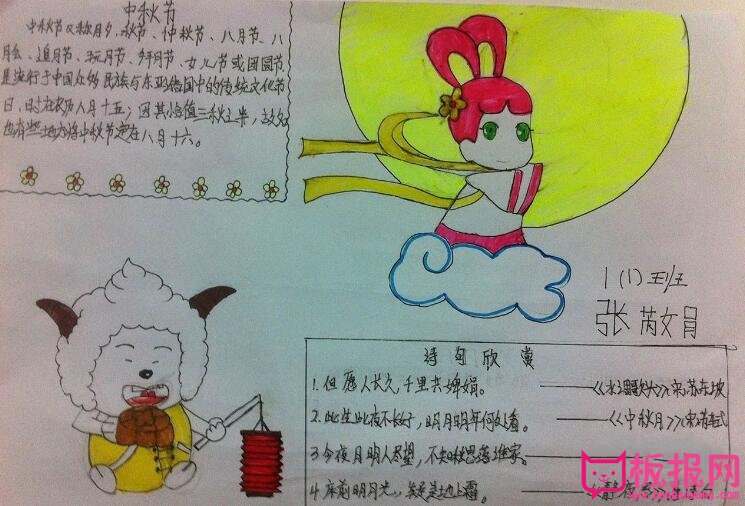 中秋节
中秋节又称月夕、秋节、仲秋节、八月节、八
月会、追月节、玩月节、拜月节、女儿节或团圆节
是流行于中国众多民族与东亚诸国中的传统文化节
日，时在农历八月十五；因其恰值三秋之半，故名
也有些地方将中秋节定在八月十六。
1（1）班
张芮文娟
诗句欣赏
1.但愿人长久，千里共婵娟。——《水调歌头》宋.苏东坡
2.此生此夜不长好，明月明年何处看。——《中秋月》宋.苏轼
3.今夜月明人尽望，不知秋思落谁家。——
4.床前明月光，疑是地上霜。
板报网